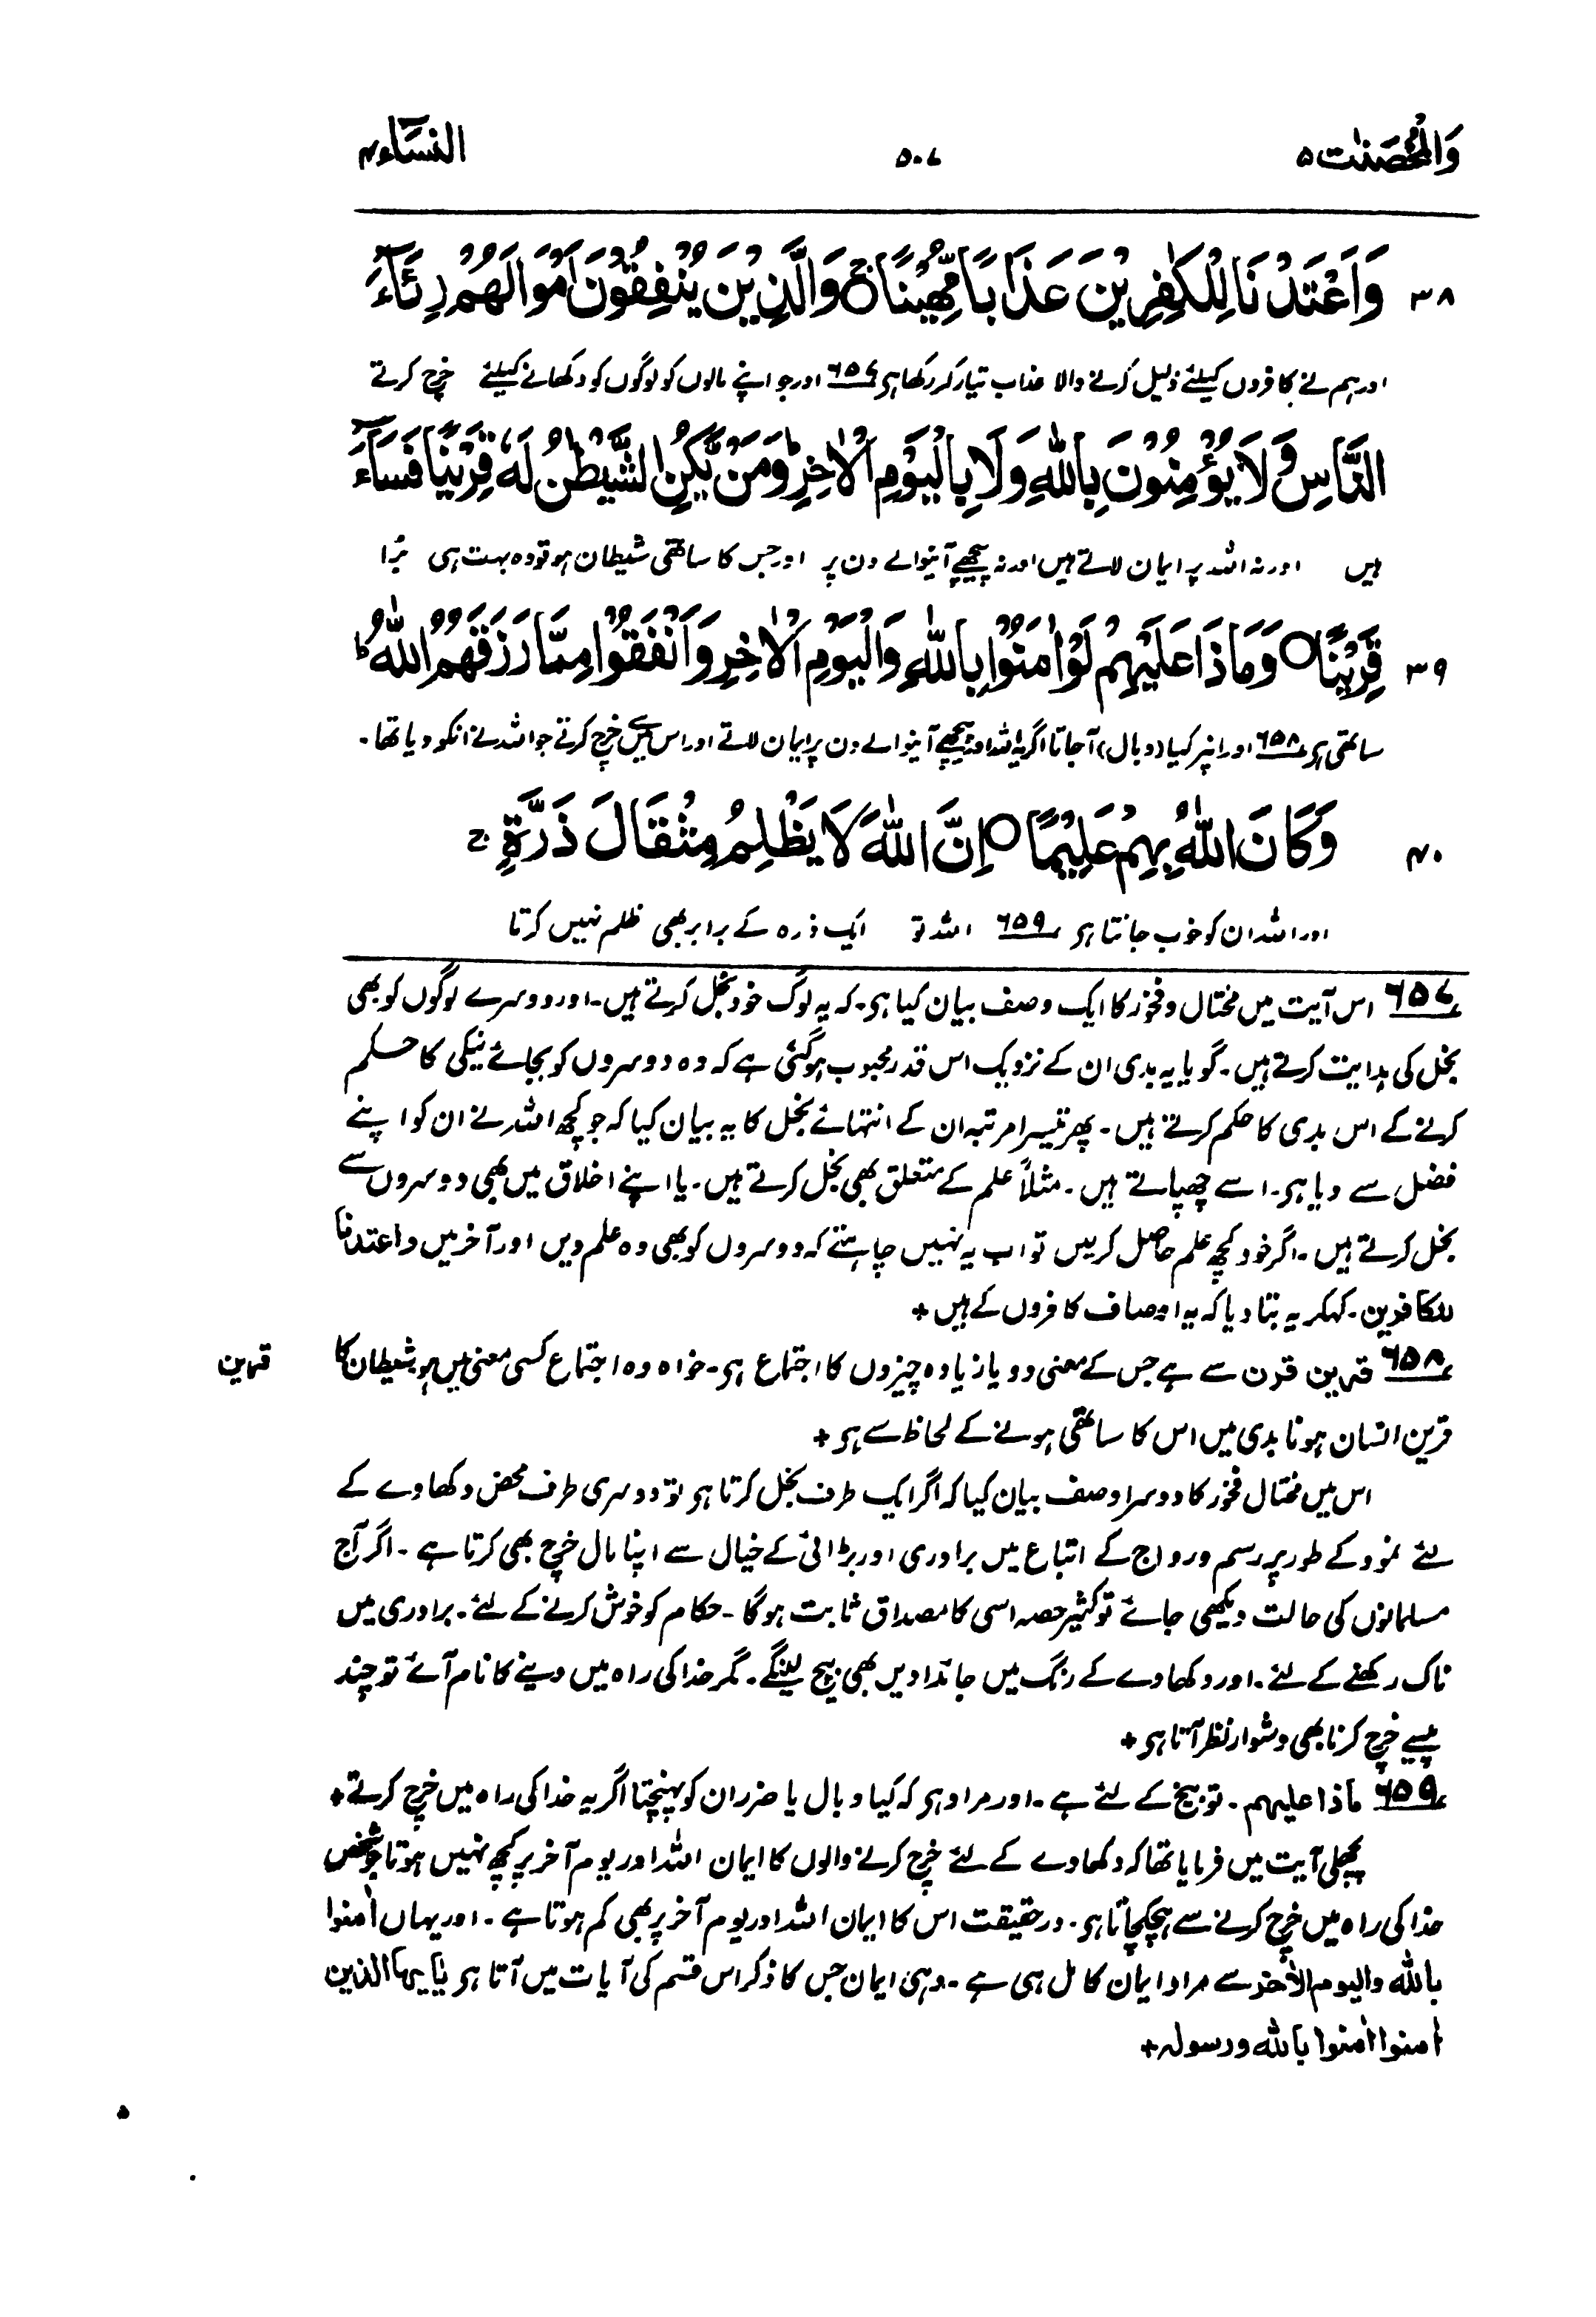 وَالْمُحْصَنٰت ۵
۵۰۷
النسآء ۴
۳۸ وَاَعْتَدْنَا لِلْكٰفِرِيْنَ عَذَابًا مُّهِيْنًا ۚ وَالَّذِيْنَ يُنْفِقُوْنَ اَمْوَالَهُمْ رِئَآءَ
اور ہم نے کافروں کیلئے ذلیل کرنے والا عذاب تیار کر رکھا ہی ۶۵۷ اور جو اپنے مالوں کو لوگوں کو دکھانے کیلئے خرچ کرتے
النَّاسِ وَلَا يُؤْمِنُوْنَ بِاللّٰهِ وَلَا بِالْيَوْمِ الْاٰخِرِ ؕ وَمَنْ يَّكُنِ الشَّيْطٰنُ لَهٗ قَرِيْنًا فَسَآءَ
ہیں اور نہ اللہ پر ایمان لاتے ہیں اور نہ پیچھے آنیوالے دن پر اور جس کا ساتھی شیطان ہو تو وہ بہت ہی بُرا
۳۹ قَرِيْنًا ○ وَمَاذَا عَلَيْهِمْ لَوْ اٰمَنُوْا بِاللّٰهِ وَالْيَوْمِ الْاٰخِرِ وَاَنْفَقُوْا مِمَّا رَزَقَهُمُ اللّٰهُ ؕ
ساتھی ہی ۶۵۸ اور انپر کیا (وبال) آجاتا اگر یہ اللہ اور پیچھے آنیوالے دن پر ایمان لاتے اور اس میں سے خرچ کرتے جو اللہ نے انکو دیا تھا۔
۴۰ وَكَانَ اللّٰهُ بِهِمْ عَلِيْمًا ○ اِنَّ اللّٰهَ لَا يَظْلِمُ مِثْقَالَ ذَرَّةٍ ۚ
اور اللہ ان کو خوب جانتا ہی ۶۵۹ اللہ تو ایک ذرہ کے برابر بھی ظلم نہیں کرتا
۶۵۷ اس آیت میں مختال و فخور کا ایک وصف بیان کیا ہی۔ کہ یہ لوگ خود بخل کرتے ہیں۔ اور دوسرے لوگوں کو بھی
بخل کی ہدایت کرتے ہیں۔ گویا یہ بدی ان کے نزدیک اس قدر محبوب ہو گئی ہے کہ وہ دوسروں کو بجائے نیکی کا حکم
کرنے کے اس بدی کا حکم کرتے ہیں۔ پھر تیسرا مرتبہ ان کے انتہائے بخل کا یہ بیان کیا کہ جو کچھ اللہ نے ان کو اپنے
فضل سے دیا ہی۔ اسے چھپاتے ہیں۔ مثلاً علم کے متعلق بھی بخل کرتے ہیں۔ یا اپنے اخلاق میں بھی دوسروں سے
بخل کرتے ہیں۔ اگر خود کچھ علم حاصل کر لیں تو اب یہ نہیں چاہتے کہ دوسروں کو بھی وہ علم دیں اور آخر میں واعتدنا
للکافرین۔ کہکر یہ بتا دیا کہ یہ اوصاف کافروں کے ہیں +
۶۵۸ قرین قرن سے ہے جس کے معنی دو یا زیادہ چیزوں کا اجتماع ہی۔ خواہ وہ اجتماع کسی معنی میں ہو شیطان کا
قرین
قرین انسان ہونا بدی میں اس کا ساتھی ہونے کے لحاظ سے ہی +
اس میں مختال فخور کا دوسرا وصف بیان کیا کہ اگر ایک طرف بخل کرتا ہی تو دوسری طرف محض دکھاوے کے
لئے نمود کے طور پر رسم و رواج کے اتباع میں برادری اور بڑائی کے خیال سے اپنا مال خرچ بھی کرتا ہے۔ اگر آج
مسلمانوں کی حالت دیکھی جائے تو کثیر حصہ اسی کا مصداق ثابت ہوگا۔ حکام کو خوش کرنے کے لئے۔ برادری میں
ناک رکھنے کے لئے۔ اور دکھاوے کے رنگ میں جائدادیں بھی بیچ لینگے۔ مگر خدا کی راہ میں دینے کا نام آئے تو چند
پیسے خرچ کرنا بھی دشوار نظر آتا ہی +
۶۵۹ ماذا علیہم۔ توبیخ کے لئے ہے۔ اور مراد ہی کہ کیا وبال یا ضرر ان کو پہنچتا اگر یہ خدا کی راہ میں خرچ کرتے +
پچھلی آیت میں فرمایا تھا کہ دکھاوے کے لئے خرچ کرنے والوں کا ایمان اللہ اور یوم آخر پر کچھ نہیں ہوتا جو شخص
خدا کی راہ میں خرچ کرنے سے ہچکچاتا ہی۔ درحقیقت اس کا ایمان اللہ اور یوم آخر پر بھی کم ہوتا ہے۔ اور یہاں اٰمنوا
باللہ والیوم الاٰخر سے مراد ایمان کامل ہی ہے۔ وہی ایمان جس کا ذکر اس قسم کی آیات میں آتا ہی یٰایہا الذین
اٰمنوا اٰمنوا باللہ ورسولہ +